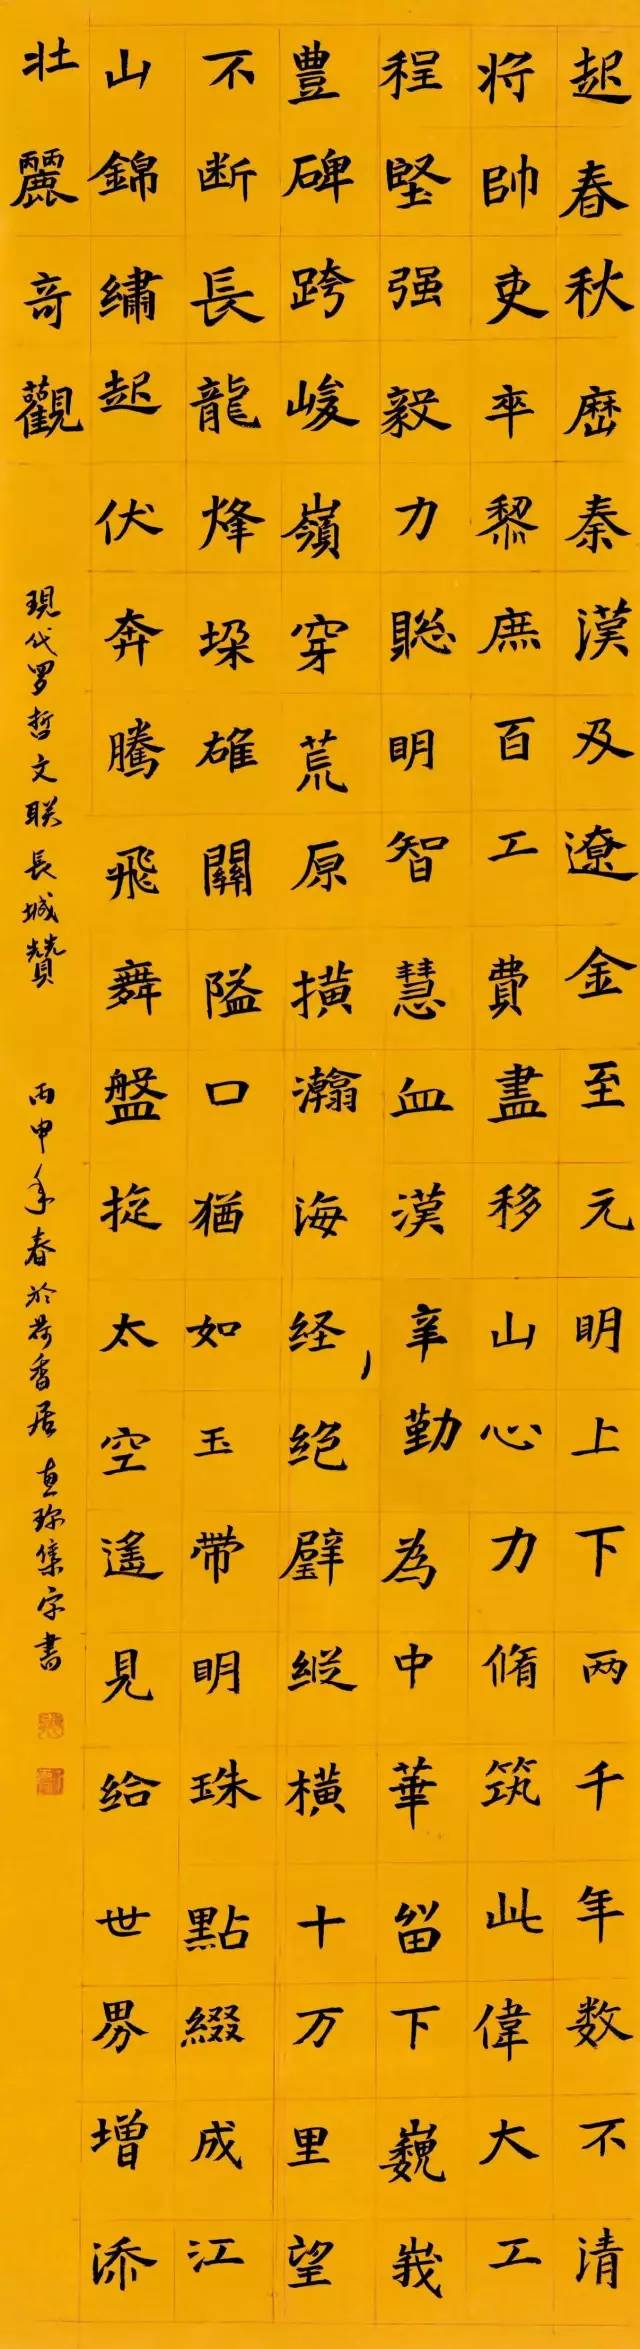 起春秋歷秦漢及遼金至元明上下两千年数不清
将帥吏卒黎庶百工費盡移山心力脩筑此偉大工
程堅强毅力聦明智慧血漢辛勤為中華留下巍峩
豊碑跨峻嶺穿荒原横瀚海経絶壁縦横十万里望
不断長龍烽垛雄關隘口猶如玉带明珠點綴成江
山錦繡起伏奔騰飛舞盤旋太空遥見给世界增添
壮麗奇觀
現代罗哲文联長城贊 丙申年春於荷香居 直珎集字書